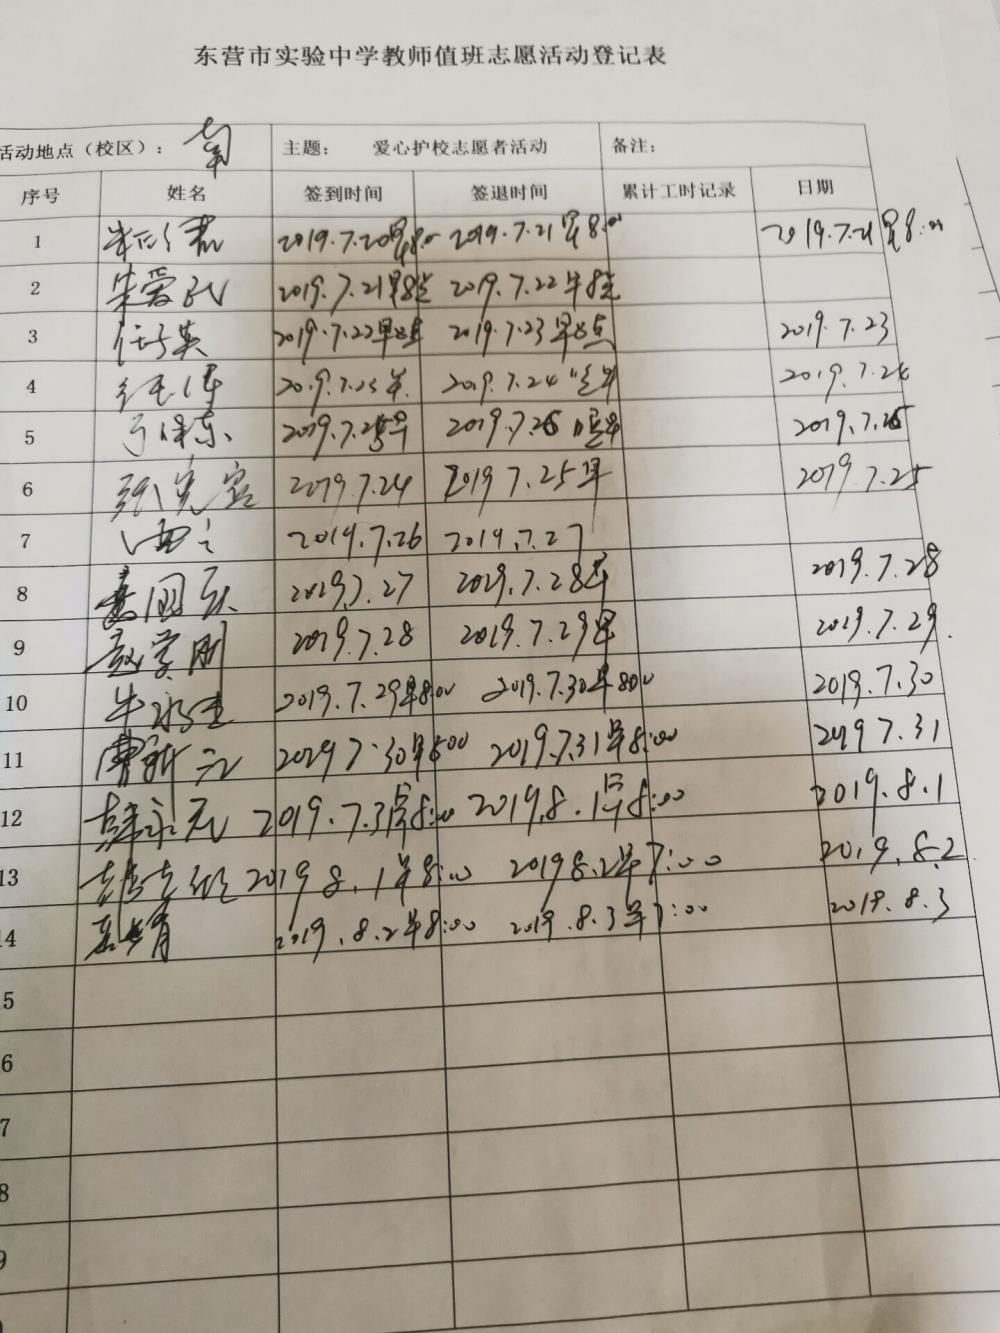 东营市实验中学教师值班志愿活动登记表
活动地点（校区）： 南 主题： 爱心护校志愿者活动 备注：
序号 姓名 签到时间 签退时间 累计工时记录 日期
1 2019.7.20早8:00 2019.7.21早8:00 2019.7.21早8:00
2 朱爱民 2019.7.21早8点 2019.7.22早8点
3 任英 2019.7.22早8点 2019.7.23早8点 2019.7.23
4 2019.7.23早 2019.7.24 早 2019.7.24
5 2019.7.25早 2019.7.26 早 2019.7.26
6 张宪 2019.7.24 2019.7.25早 2019.7.25
7 2019.7.26 2019.7.27
8 2019.7.27 2019.7.28早 2019.7.28
9 赵学刚 2019.7.28 2019.7.29早 2019.7.29.
10 牛 2019.7.29早8:00 2019.7.30早8:00 2019.7.30
11 曹新元 2019 7.30早8:00 2019.7.31早8:00 2019 7.31
12 薛永亮 2019.7.31早8:00 2019.8.1早8:00 2019.8.1
13 2019 8.1早8:00 2019 8.2早7:00 2019.8.2
14 2019.8.2早8:00 2019.8.3早7:00 2019.8.3
5
6
7
8
9